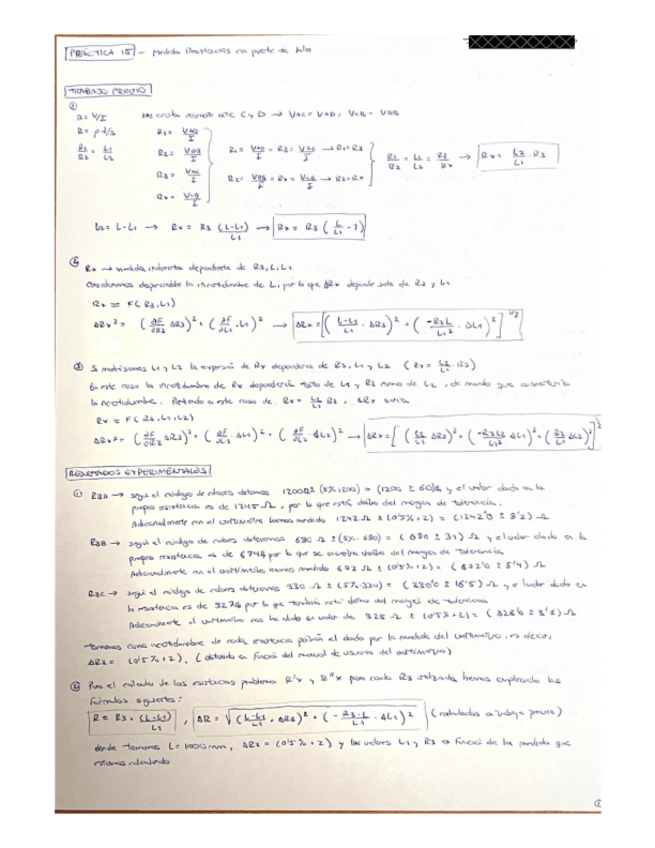 PRÁCTICA 15 - Medida Resistencias con puente de hilo
TRABAJO PREVIO
①
R = V/I No circula corriente entre C y D → VAC = VAD, VCB = VDB
R = ρ·l/s R1 = VAD/I
R1/R2 = L1/L2 R2 = VDB/I R1 = VAD/I = R3 = VAC/I → R1 = R3 R1/R2 = L1/L2 = R3/Rx → Rx = L2/L1 · R3
R3 = VAC/I R2 = VDB/I = Rx = VCB/I → R2 = Rx
Rx = VCB/I
L2 = L - L1 → Rx = R3 (L-L1)/L1 → Rx = R3 (L/L1 - 1)
② Rx → medida indirecta dependiente de R3, L, L1
Consideramos despreciable la incertidumbre de L, por lo que ΔRx depende solo de R3 y L1
Rx = F(R3, L1)
ΔRx² = (∂F/∂R3 ΔR3)² + (∂F/∂L1 · L1)² → ΔRx = [(L-L1/L1 · ΔR3)² + (-R3L/L1² · ΔL1)²]^1/2
③ Si medimos L1 y L2 la expresión de Rx dependería de R3, L1 y L2 (Rx = L2/L1 · R3)
En este caso la incertidumbre de Rx dependería tanto de L1 y R3 como de L2, de modo que aumentaría
la incertidumbre. Partiendo en este caso de Rx = L2/L1 R3, ΔRx sería
Rx = F(R3, L1, L2)
ΔRx² = (∂F/∂R3 ΔR3)² + (∂F/∂L1 · ΔL1)² + (∂F/∂L2 · ΔL2)² → ΔRx = [(L2/L1 ΔR3)² + (-R3L2/L1² ΔL1)² + (R3/L1 ΔL2)²]^1/2
RESULTADOS EXPERIMENTALES
① R3A → según el código de colores obtenemos 1200Ω ± (5% 1200) = (1200 ± 60)Ω y el valor dado en la
propia resistencia es de 1245 Ω, por lo que está dentro del margen de tolerancia.
Adicionalmente con el voltímetro hemos medido 1242 Ω ± (0'5% + 2) = (1242'0 ± 8'2) Ω
R3B → según el código de colores obtenemos 680 Ω ± (5% · 680) = (680 ± 34) Ω y el valor dado en la
propia resistencia es de 674Ω por lo que se encuentra dentro del margen de tolerancia
Adicionalmente con el voltímetro hemos medido 672 Ω ± (0'5% + 2) = (672'0 ± 5'4) Ω
R3C → según el código de colores obtenemos 330 Ω ± (5% · 330) = (330'0 ± 16'5) Ω, y el valor dado en
la resistencia es de 327Ω por lo que también está dentro del margen de tolerancia
Adicionalmente el voltímetro nos ha dado un valor de 328 Ω ± (0'5% + 2) = (328'0 ± 3'6) Ω
tomamos como incertidumbre de cada resistencia patrón el dado por la medida del voltímetro, es decir,
ΔR3 = (0'5% + 2), (obtenido en función del manual de usuario del voltímetro)
② Para el cálculo de las resistencias problema R'x y R''x para cada R3 utilizada hemos empleado las
fórmulas siguientes:
R = R3 · (L-L1)/L1 , ΔR = √(L-L1/L1 · ΔR3)² + (-R3·L/L1² · ΔL1)² (calculadas en trabajo previo)
donde tomamos L = 1000mm, ΔR3 = (0'5% + 2) y los valores L1 y R3 en función de la medida que
estamos calculando